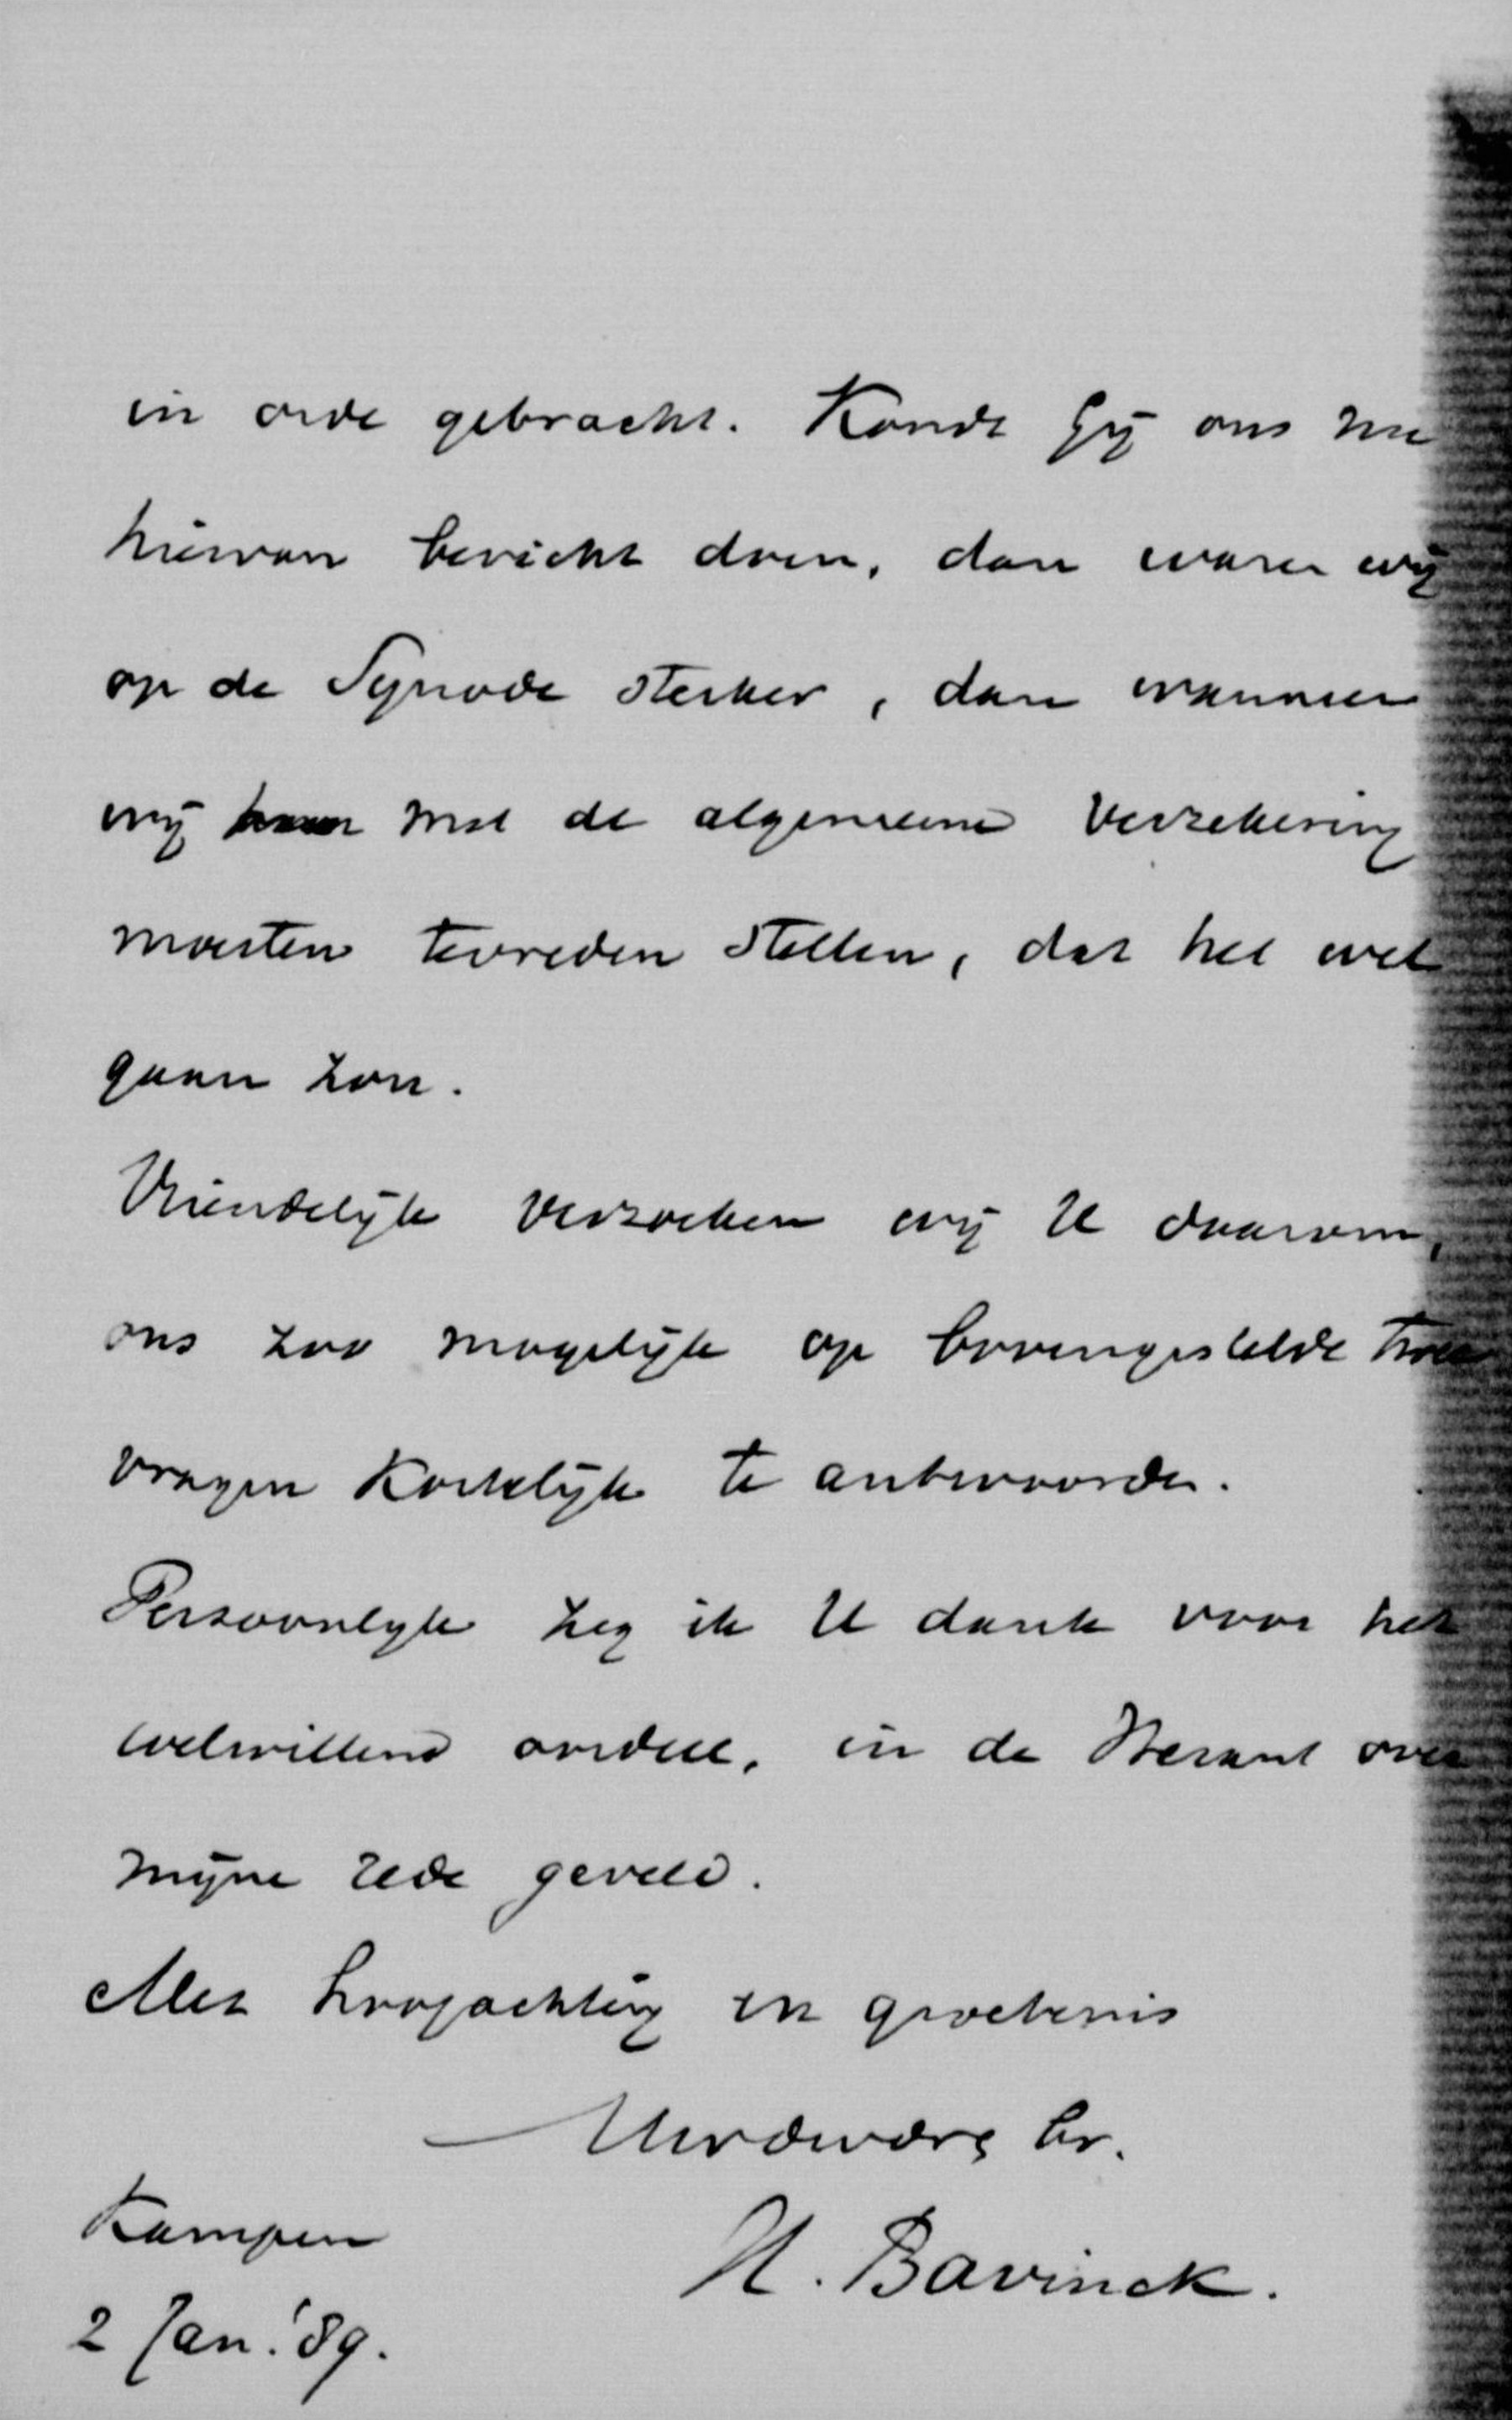 in orde gebracht. Konde Gij ons nu
hiervan bericht doen, dan waren wij
op de Synode sterker, dan wanneer
wij met de algemeene verzekering
moesten tevreden stellen, dat het wel
gaan zou.
Vriendelijk verzoeken wij U daarom,
ons zoo mogelijk op bovengestelde twee
vragen kortelijk te antwoorden.
Persoonlijk zeg ik U dank voor het
welwillend oordeel, in de Heraut over
mijne rede geveld.
Met hoogachting en groetenis
Uw dw. br.
H. Bavinck.
Kampen
2 Jan. '89.